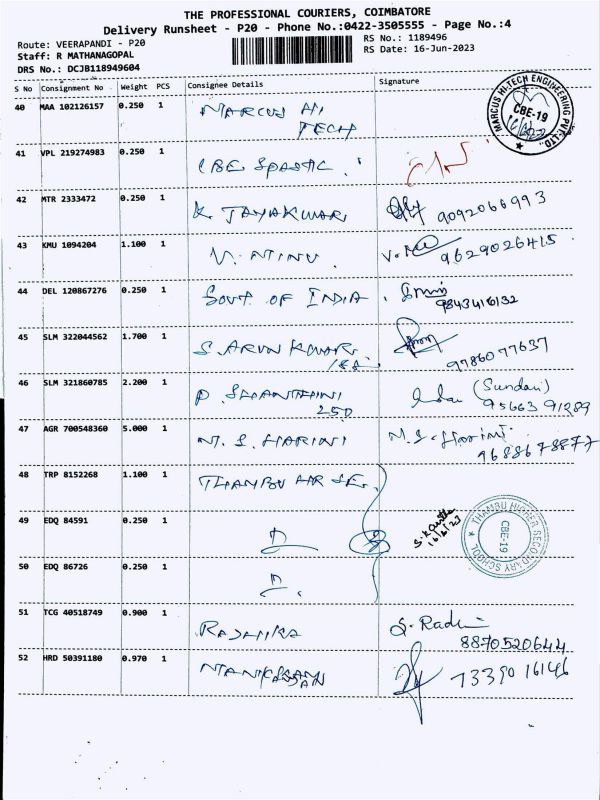 THE PROFESSIONAL COURIERS, COIMBATORE
Delivery Runsheet - P20 - Phone No.:0422-3505555 - Page No.:4
Route: VEERAPANDI - P20
RS No.: 1189496
Staff: R MATHANAGOPAL
RS Date: 16-Jun-2023
DRS No.: DCJB118949604
S No Consignment No Weight PCS Consignee Details Signature
40 MAA 102126157 0.250 1 MARCUS HI
TECH
MARCUS HI-TECH ENGINEERING PVT. LTD.
CBE-19
41 VPL 219274983 0.250 1 CBE SPASTIC
42 MTR 2333472 0.250 1 K. JAYAKUMAR 9092066993
43 KMU 1094204 1.100 1 V. NTINU 9629026415
44 DEL 120867276 0.250 1 GOVT OF INDIA 9843416132
45 SLM 322044562 1.700 1 S. ARUN KUMAR 9786077637
188
46 SLM 321860785 2.200 1 P SHANTHINI (Sundari)
250 9566391289
47 AGR 700548360 5.000 1 M. S. HARINI M.S. Harini
9688678877
48 TRP 8152268 1.100 1 THAMBU HR SE.
49 EDQ 84591 0.250 1
16/6/23
THAMBU HIGHER SECONDARY SCHOOL
CBE-19
50 EDQ 86726 0.250 1
51 TCG 40518749 0.900 1 RADHIKA S. Radhi
8870520644
52 HRD 50391180 0.970 1 7339016146